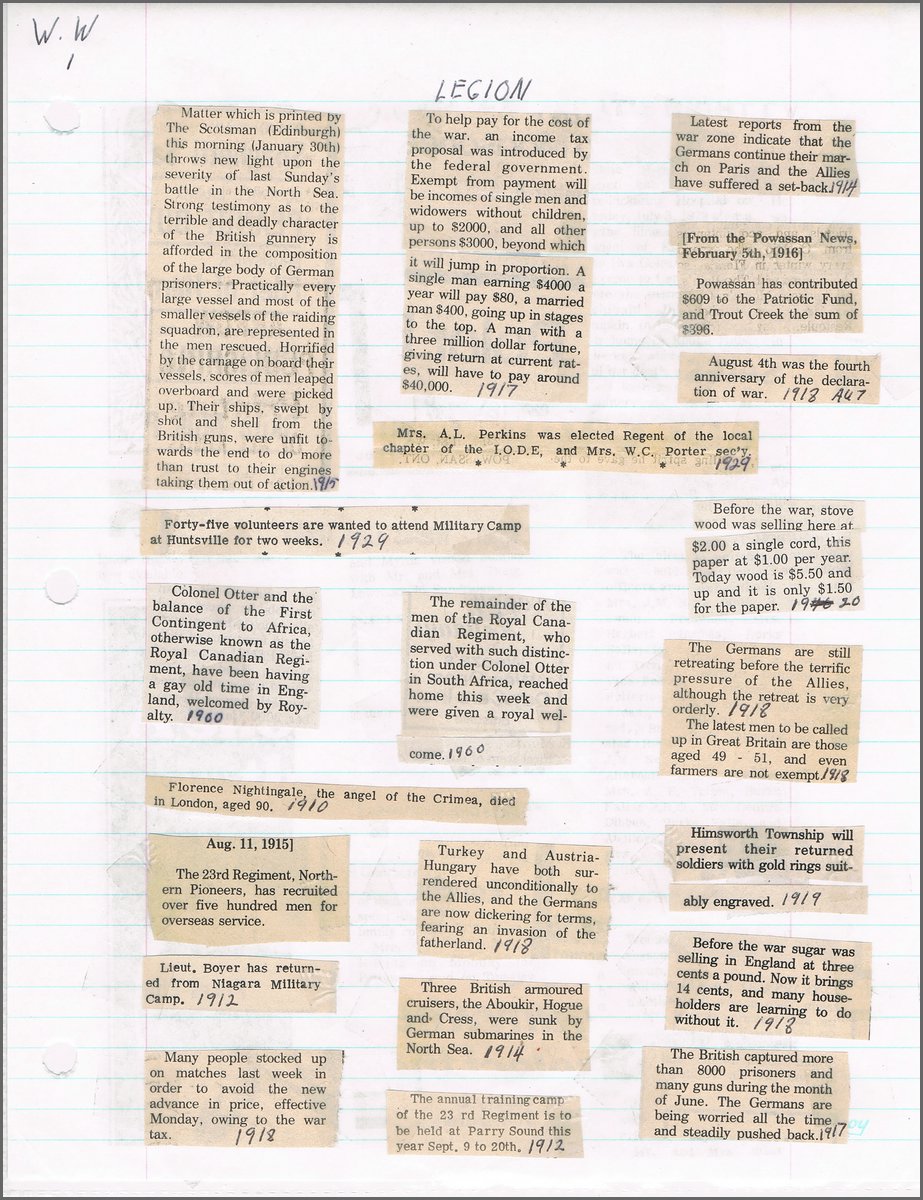 W.W
1
LEGION
Matter which is printed by
The Scotsman (Edinburgh)
this morning (January 30th)
throws new light upon the
severity of last Sunday's
battle in the North Sea.
Strong testimony as to the
terrible and deadly character
of the British gunnery is
afforded in the composition
of the large body of German
prisoners. Practically every
large vessel and most of the
smaller vessels of the raiding
squadron, are represented in
the men rescued. Horrified
by the carnage on board their
vessels, scores of men leaped
overboard and were picked
up. Their ships, swept by
shot and shell from the
British guns, were unfit to-
wards the end to do more
than trust to their engines
taking them out of action. 1915
To help pay for the cost of
the war. an income tax
proposal was introduced by
the federal government.
Exempt from payment will
be incomes of single men and
widowers without children,
up to $2000, and all other
persons $3000, beyond which
it will jump in proportion. A
single man earning $4000 a
year will pay $80, a married
man $400, going up in stages
to the top. A man with a
three million dollar fortune,
giving return at current rat-
es, will have to pay around
$40,000. 1917
Latest reports from the
war zone indicate that the
Germans continue their mar-
ch on Paris and the Allies
have suffered a set-back. 1914
[From the Powassan News,
February 5th, 1916]
Powassan has contributed
$609 to the Patriotic Fund,
and Trout Creek the sum of
$396.
August 4th was the fourth
anniversary of the declara-
tion of war. 1918 AU7
Mrs. A.L. Perkins was elected Regent of the local
chapter of the I.O.D.E, and Mrs. W.C. Porter sec'y.
* * * 1929
* * *
Forty-five volunteers are wanted to attend Military Camp
at Huntsville for two weeks. 1929
* * *
Before the war, stove
wood was selling here at
$2.00 a single cord, this
paper at $1.00 per year.
Today wood is $5.50 and
up and it is only $1.50
for the paper. 1920
Colonel Otter and the
balance of the First
Contingent to Africa,
otherwise known as the
Royal Canadian Regi-
ment, have been having
a gay old time in Eng-
land, welcomed by Roy-
alty. 1900
The remainder of the
men of the Royal Cana-
dian Regiment, who
served with such distinc-
tion under Colonel Otter
in South Africa, reached
home this week and
were given a royal wel-
come. 1900
The Germans are still
retreating before the terrific
pressure of the Allies,
although the retreat is very
orderly. 1918
The latest men to be called
up in Great Britain are those
aged 49 - 51, and even
farmers are not exempt. 1918
Florence Nightingale, the angel of the Crimea, died
in London, aged 90. 1910
Aug. 11, 1915]
The 23rd Regiment, North-
ern Pioneers, has recruited
over five hundred men for
overseas service.
Turkey and Austria-
Hungary have both sur-
rendered unconditionally to
the Allies, and the Germans
are now dickering for terms,
fearing an invasion of the
fatherland. 1918
Himsworth Township will
present their returned
soldiers with gold rings suit-
ably engraved. 1919
Lieut. Boyer has return-
ed from Niagara Military
Camp. 1912
Three British armoured
cruisers, the Aboukir, Hogue
and Cress, were sunk by
German submarines in the
North Sea. 1914
Before the war sugar was
selling in England at three
cents a pound. Now it brings
14 cents, and many house-
holders are learning to do
without it. 1918
Many people stocked up
on matches last week in
order to avoid the new
advance in price, effective
Monday, owing to the war
tax. 1918
The annual training camp
of the 23 rd Regiment is to
be held at Parry Sound this
year Sept. 9 to 20th. 1912
The British captured more
than 8000 prisoners and
many guns during the month
of June. The Germans are
being worried all the time
and steadily pushed back. 1917